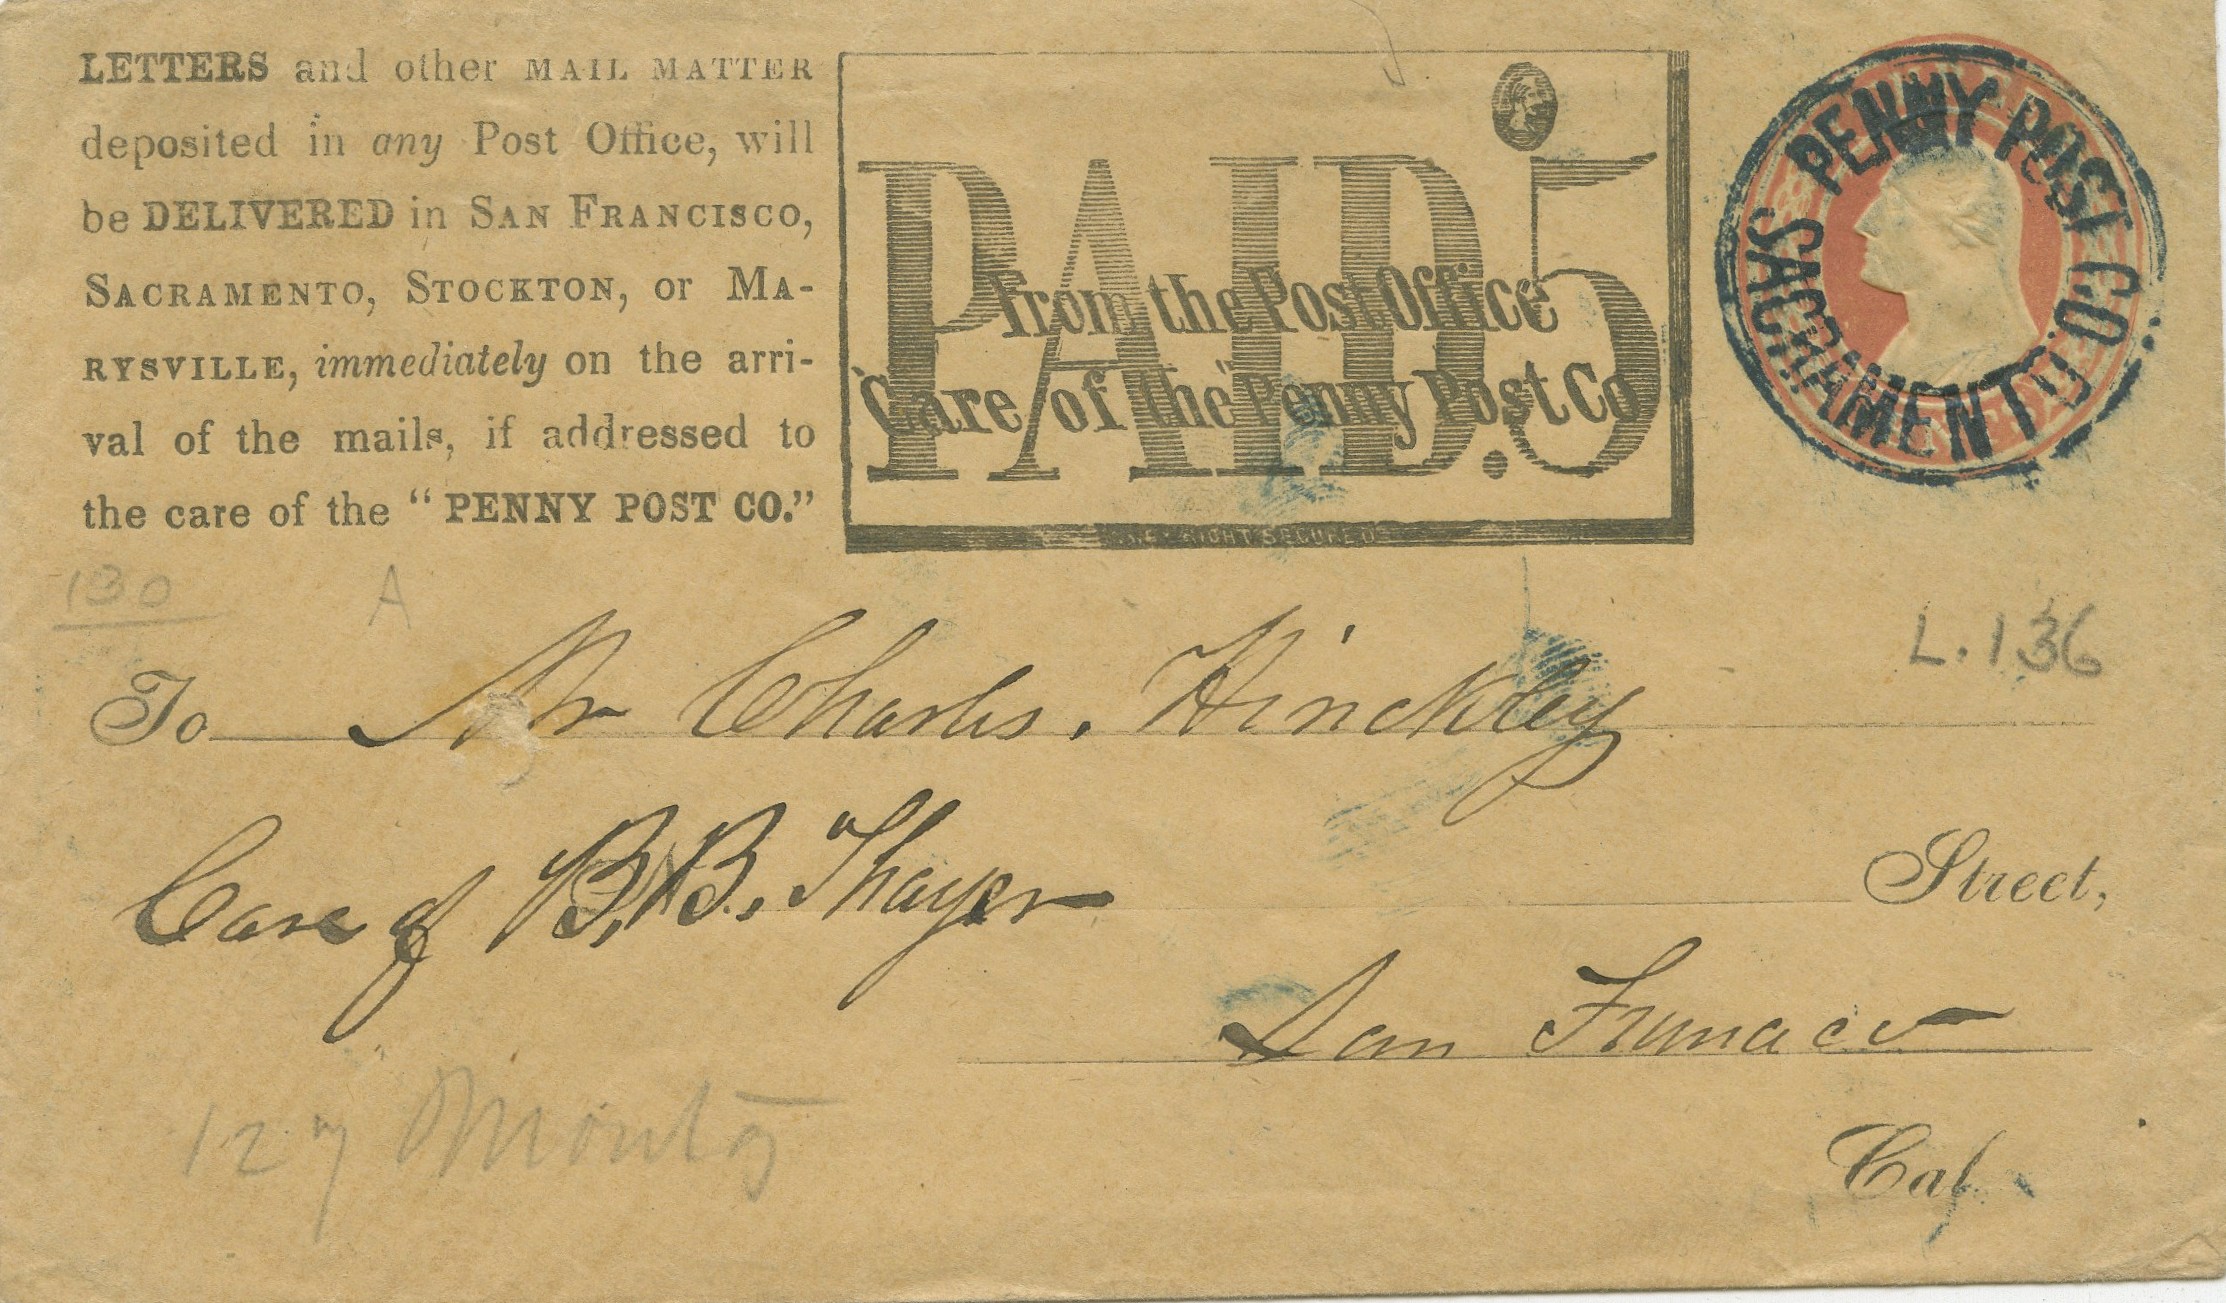 LETTERS and other MAIL MATTER
deposited in any Post Office, will
be DELIVERED in SAN FRANCISCO,
SACRAMENTO, STOCKTON, or MA-
RYSVILLE, immediately on the arri-
val of the mails, if addressed to
the care of the "PENNY POST CO."
PAID.5
From the Post Office
Care of the Penny Post Co
COPY RIGHT SECURED
PENNY POST CO.
SACRAMENTO
130
A
L.136
To Mr Charles. Hinckley
Care of B.B. Thayer
Street,
San Francisco
Cal
127 Montgy